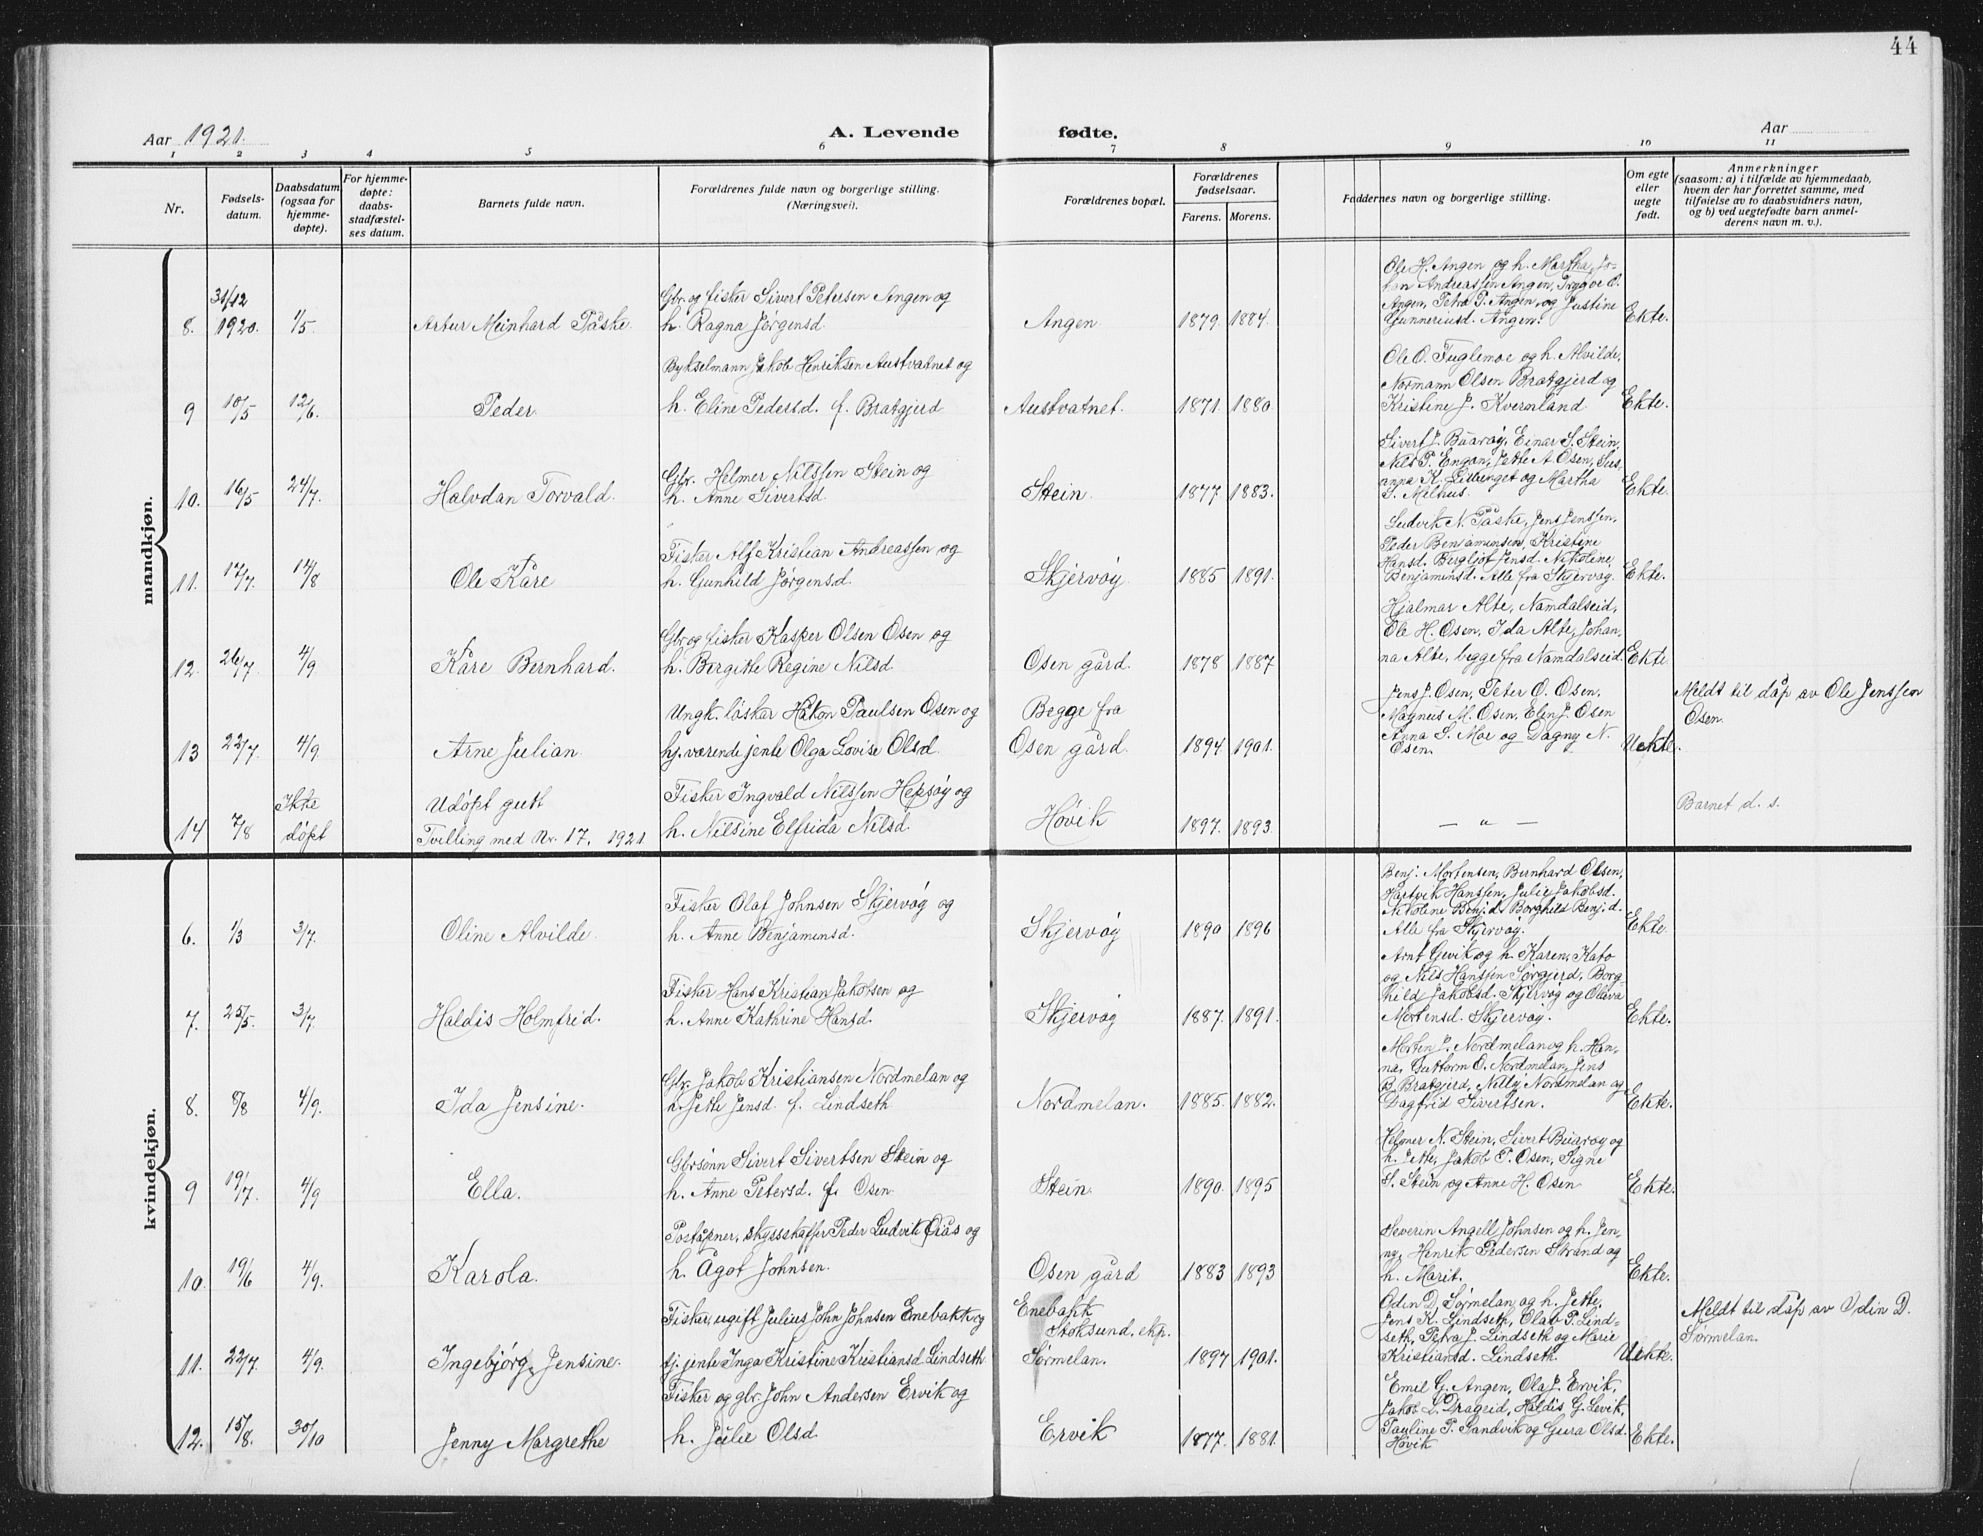 44
Aar 1921.
A. Levende fødte.
Aar
1 2 3 4 5 6 7 8 9 10 11
Nr.
Fødsels-
datum.
Daabsdatum
(ogsaa for
hjemme-
døpte).
For hjemme-
døpte:
daabs-
stadfæstel-
ses datum.
Barnets fulde navn.
Forældrenes fulde navn og borgerlige stilling.
(Næringsvei).
Forældrenes bopæl.
Forældrenes
fødselsaar.
Farens. Morens.
Faddernes navn og borgerlige stilling.
Om egte
eller
uegte
født.
Anmerkninger
(saasom: a) i tilfælde av hjemmedaab,
hvem der har forrettet samme, med
tilføielse av to daabsvidners navn,
og b) ved uegtefødte barn anmel-
derens navn m. v.).
mandkjøn.
8. 31/12
1920. 1/5 Artur Meinhard Påske.
Gbr. og fisker Sivert Petersen Angen og
h. Ragna Jørgensd.
Angen 1879. 1884.
Ole H. Angen og h. Martha, Jo-
han Andreassen Angen, Trygve O.
Angen, Petra P. Angen og Justine
Gunneriusd. Angen.
Ekte.
9 10/5 12/6. Peder
Bykselmann Jakob Henriksen Austvatnet og
h. Eline Pedersd. f. Bratgjerd
Austvatnet. 1871. 1880
Ole O. Fuglemoe og h. Alvilde,
Normann Olsen Bratgjerd og
Kristine J. Kvernland
Ekte.
10. 16/5 24/7. Halvdan Torvald.
Gbr. Helmer Nilssen Stein og
h. Anne Sivertsd.
Stein. 1877. 1883.
Sivert J. Buarøy, Einar S. Stein,
Nils P. Engan, Jette A. Osen, Sus-
anna K. Lillenget og Martha
S. Melhus.
Ekte.
11. 17/7. 14/8 Ole Kåre
Fisker Alf Kristian Andreassen og
h. Gunhild Jørgensd.
Skjervøy 1885 1891.
Ludvik N. Påske, Jens Jenssen,
Peder Benjaminsen, Kristine
Hansd. Bergljot Jensd. Nikoline
Benjaminsd. Alle fra Skjervøy.
Ekte.
12. 26/7 4/9 Kåre Bernhard.
Gbr og fisker Kasper Olsen Osen og
h. Bergitte Regine Nilsd.
Osen gård. 1878 1887
Hjalmar Alte, Namdalseid,
Ole H. Osen, Ida Alte, Johan-
na Alte, begge fra Namdalseid.
Ekte
13 22/7. 4/9 Arne Julian.
Ungk. fisker Håkon Paulsen Osen og
hj.værende jente Olga Lovise Olsd.
Begge fra
Osen gård. 1894 1901.
Jens J. Osen, Peter O. Osen,
Magnus M. Osen, Elen J. Osen
Anna S. Moe og Dagny N.
Osen.
Uekte.
Meldt til dåp av Ole Jenssen
Osen.
14 7/8 Ikke
døpt
Udøpt gutt
Tvilling med Nr. 17. 1921.
Fisker Ingvald Nilssen Hepsøy og
h. Nilsine Elfrida Nilsd.
Høvik 1897. 1893.
— „ —
Barnet d. s.
kvindekjøn.
6. 1/3 3/7. Oline Alvilde.
Fisker Olaf Johnsen Skjervøy og
h. Anne Benjaminsd.
Skjervøy 1890 1896
Benj. Mortensen, Bernhard Olsen,
Hartvik Hanssen, Julie Jakobsd.
Nikoline Benj.d. Borghild Benj.d.
Alle fra Skjervøy.
Ekte.
7. 25/5. 3/7. Haldis Holmfrid.
Fisker Hans Kristian Jakobsen og
h. Anne Kathrine Hansd.
Skjervøy 1887. 1891.
Arnt Gevik og h. Karen, Kato
og Nils Hanssen Sørgjerd, Borg-
hild Jakobsd. Skjervøy og Olava
Mortensd. Skjervøy.
Ekte.
8. 8/8 4/9. Ida Jensine.
Gbr. Jakob Kristiansen Nordmelan og
h. Jette Jensd. f. Lindseth
Nordmelan. 1885. 1882.
Morten J. Nordmelan og h. Han-
na, Guttorm O. Nordmelan, Jens
B. Bratgjerd, Nelly Nordmelan og
Dagfrid Sivertsen.
Ekte.
9 19/7. 4/9 Ella.
Gbrsønn Sivert Sivertsen Stein og
h. Anne Petersd. f. Osen.
Stein. 1890. 1895
Helmer N. Stein, Sivert Buarøy og
h. Jette, Jakob P. Osen, Signe
S. Stein og Anne H. Osen
Ekte.
10. 19/6 4/9. Karola.
Poståpner, skysskaffer Peder Ludvik Aas og
h. Ågot Johnsen.
Osen gård 1883 1893
Severin Angell Johnsen og h. Jen-
ny, Henrik Pedersen Strand og
h. Marit.
Ekte.
11. 22/7. 4/9. Ingebjørg Jensine.
Fisker, ugift Julius John Johnsen Enebakk og
tj.jente Inga Kristine Kristiansd. Lindseth
Enebakk
Stoksund. ekp.
Sørmelan. 1897 1901.
Odin D. Sørmelan og h. Jette,
Jens K. Lindseth, Olav P. Lind-
seth, Petra J. Lindseth og Marie
Kristiansd. Lindseth.
Uekte.
Meldt til dåp av Odin D.
Sørmelan.
12. 15/8. 30/10 Jenny Margrethe
Fisker og gbr. John Andersen Ervik og
h. Julie Olsd.
Ervik 1877. 1881.
Emil G. Angen, Ola J. Ervik,
Jakob L. Drageid, Haldis G. Levik,
Pauline P. Sandvik og Gura Olsd.
Høvik
Ekte.